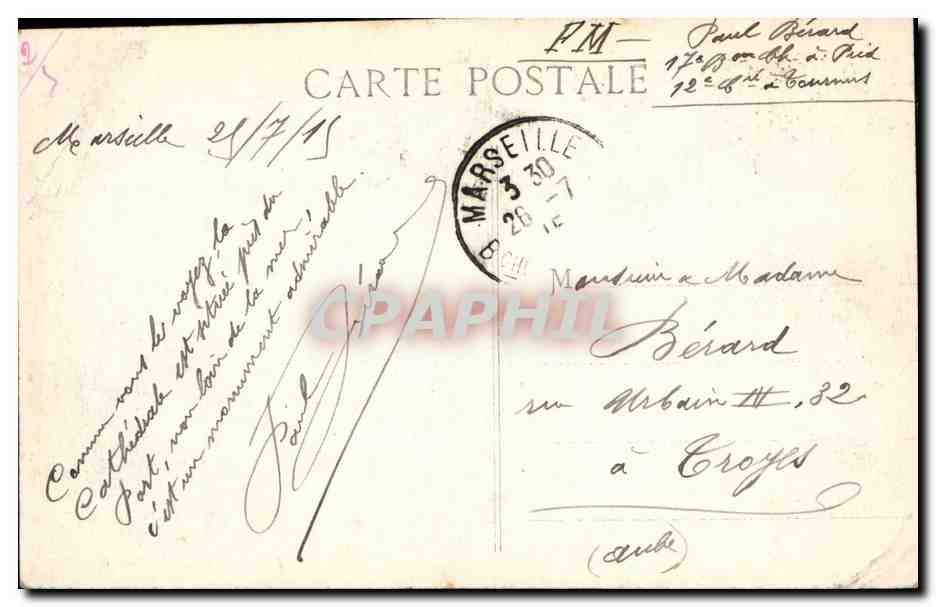 FM —
Paul Bérard
17e Bon Ch. à Pied
12e Cie à Tournus
CARTE POSTALE
Marseille 25/7/15
MARSEILLE
3 30
26 - 7
15
Comme vous le voyez, la
Cathédrale est située près du
Port, non loin de la mer,
c'est un monument admirable.
Paul Bérard
CPAPHIL
Monsieur & Madame
Bérard
rue Urbain IV, 32
à Troyes
(Aube)